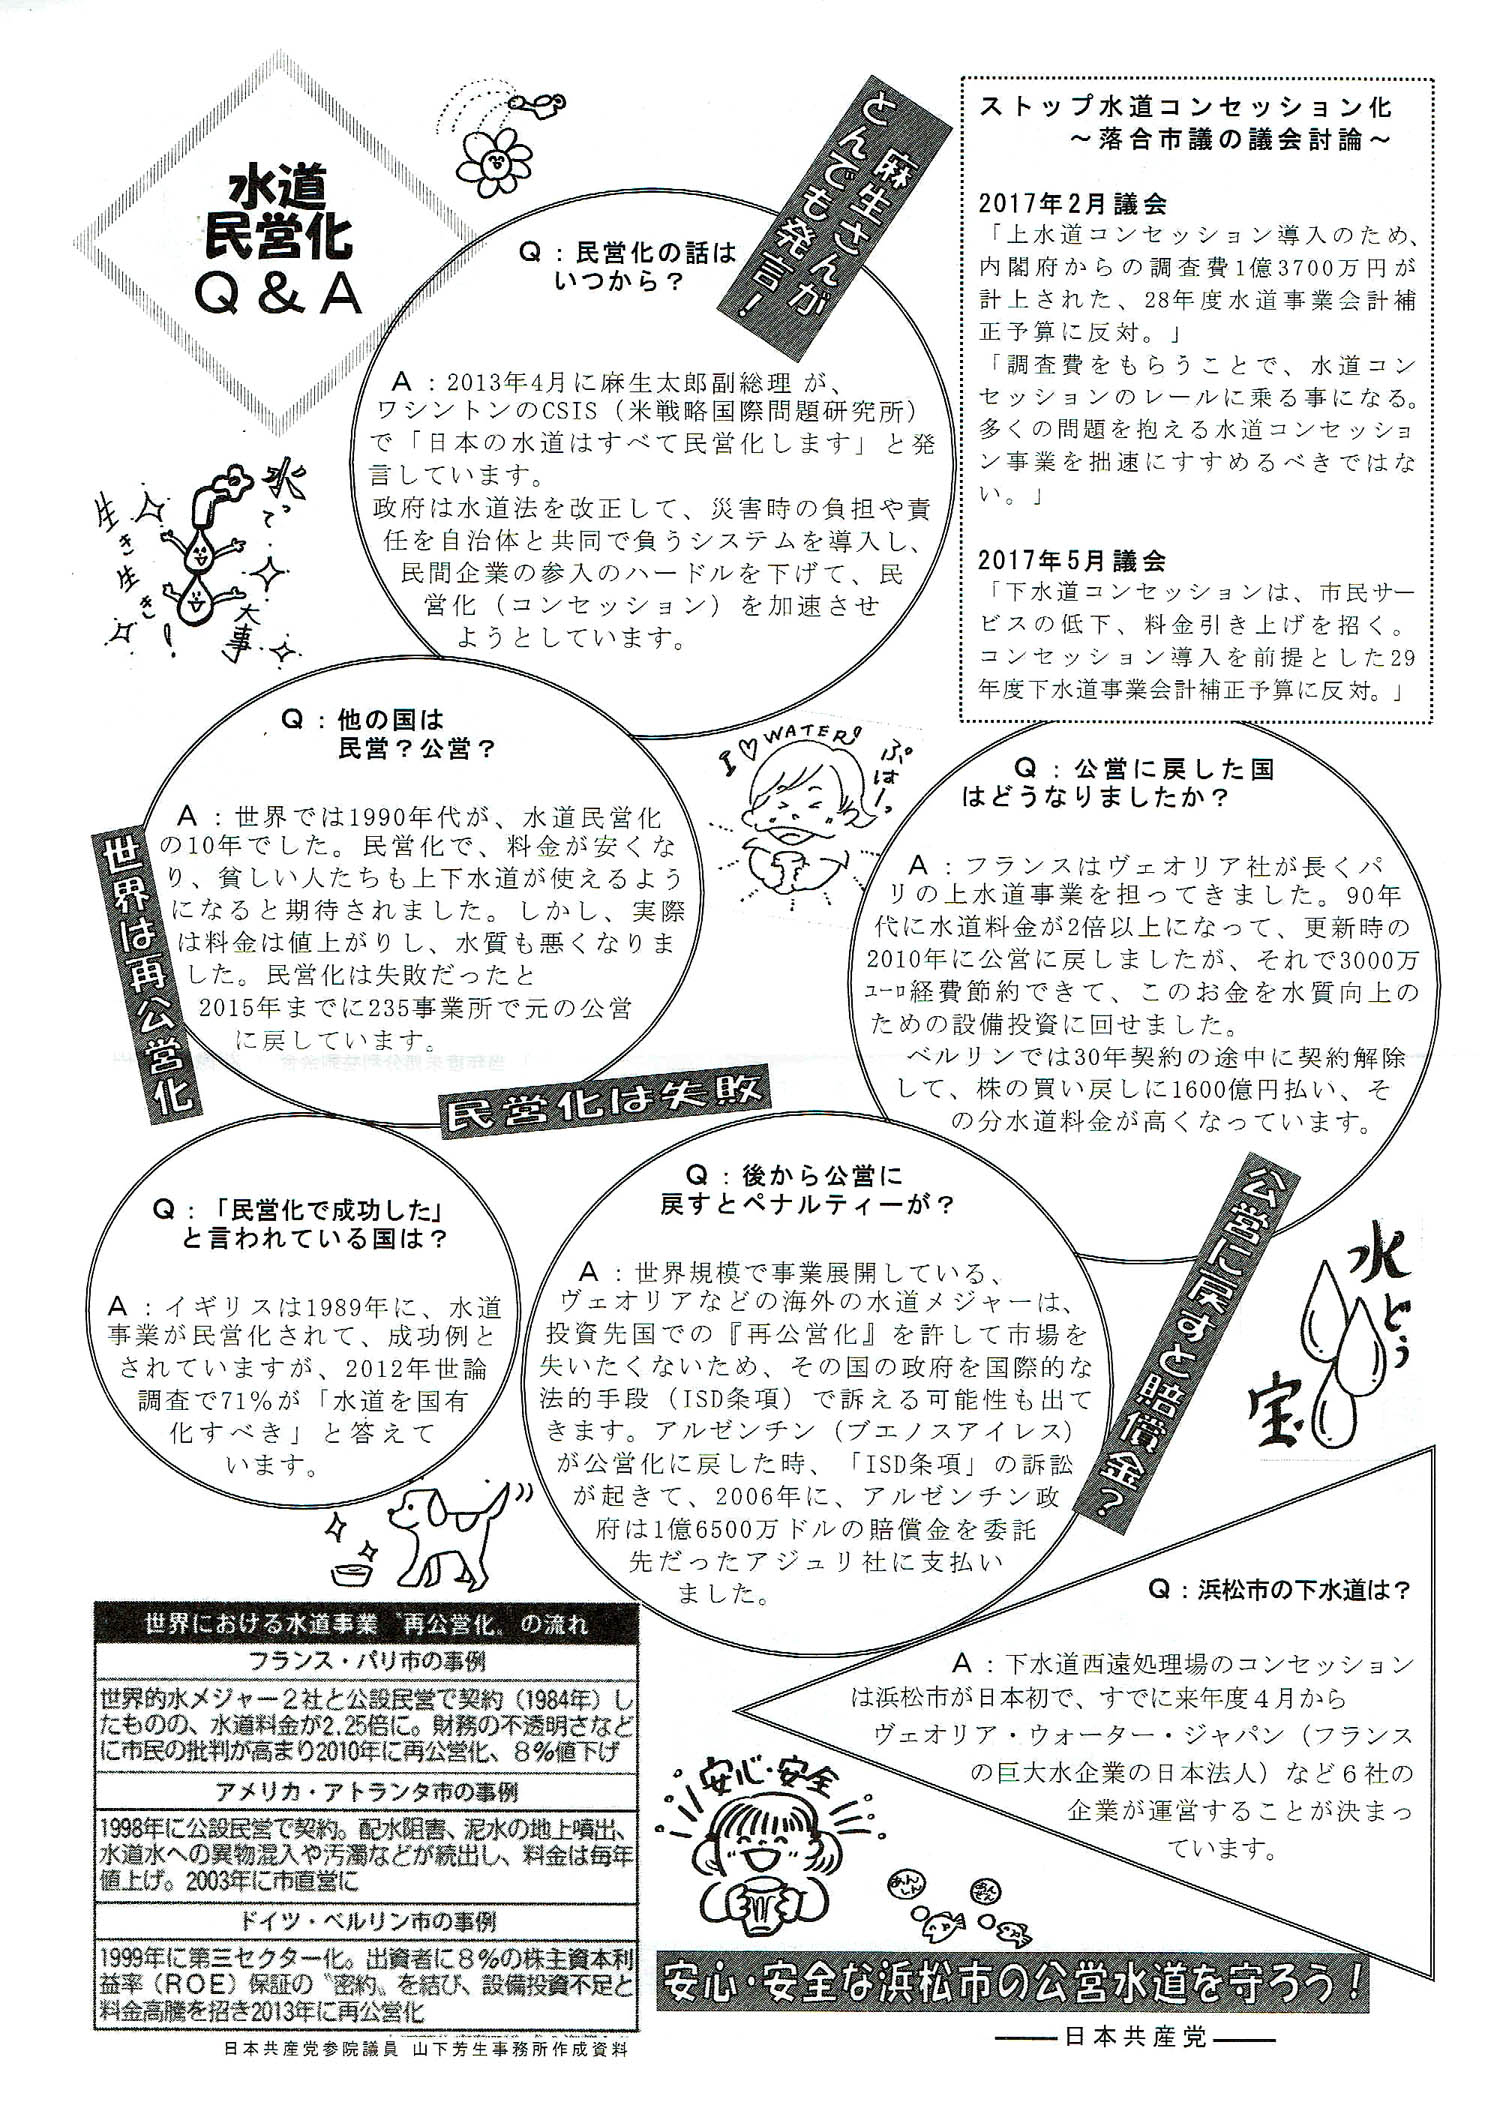 水道
民営化
Q&A
水って
大事
生き生き!
麻生さんが
とんでも発言!
Q：民営化の話は
いつから？
A：2013年4月に麻生太郎副総理 が、
ワシントンのCSIS（米戦略国際問題研究所）
で「日本の水道はすべて民営化します」と発
言しています。
政府は水道法を改正して、災害時の負担や責
任を自治体と共同で負うシステムを導入し、
民間企業の参入のハードルを下げて、民
営化（コンセッション）を加速させ
ようとしています。
ストップ水道コンセッション化
～落合市議の議会討論～
2017年2月議会
「上水道コンセッション導入のため、
内閣府からの調査費1億3700万円が
計上された、28年度水道事業会計補
正予算に反対。」
「調査費をもらうことで、水道コン
セッションのレールに乗る事になる。
多くの問題を抱える水道コンセッショ
ン事業を拙速にすすめるべきではな
い。」
2017年5月議会
「下水道コンセッションは、市民サー
ビスの低下、料金引き上げを招く。
コンセッション導入を前提とした29
年度下水道事業会計補正予算に反対。」
Q：他の国は
民営？公営？
A：世界では1990年代が、水道民営化
の10年でした。民営化で、料金が安くな
り、貧しい人たちも上下水道が使えるよう
になると期待されました。しかし、実際
は料金は値上がりし、水質も悪くなりま
した。民営化は失敗だったと
2015年までに235事業所で元の公営
に戻しています。
世界は再公営化
民営化は失敗
I♡WATER!
ぷはーっ
Q：公営に戻した国
はどうなりましたか？
A：フランスはヴェオリア社が長くパ
リの上水道事業を担ってきました。90年
代に水道料金が2倍以上になって、更新時の
2010年に公営に戻しましたが、それで3000万
ﾕｰﾛ経費節約できて、このお金を水質向上の
ための設備投資に回せました。
ベルリンでは30年契約の途中に契約解除
して、株の買い戻しに1600億円払い、そ
の分水道料金が高くなっています。
Q：「民営化で成功した」
と言われている国は？
A：イギリスは1989年に、水道
事業が民営化されて、成功例と
されていますが、2012年世論
調査で71%が「水道を国有
化すべき」と答えて
います。
Q：後から公営に
戻すとペナルティーが？
A：世界規模で事業展開している、
ヴェオリアなどの海外の水道メジャーは、
投資先国での『再公営化』を許して市場を
失いたくないため、その国の政府を国際的な
法的手段（ISD条項）で訴える可能性も出て
きます。アルゼンチン（ブエノスアイレス）
が公営化に戻した時、「ISD条項」の訴訟
が起きて、2006年に、アルゼンチン政
府は1億6500万ドルの賠償金を委託
先だったアジュリ社に支払い
ました。
公営に戻すと賠償金？
水どう
宝
Q：浜松市の下水道は？
A：下水道西遠処理場のコンセッション
は浜松市が日本初で、すでに来年度4月から
ヴェオリア・ウォーター・ジャパン（フランス
の巨大水企業の日本法人）など6社の
企業が運営することが決まっ
ています。
世界における水道事業〝再公営化〟の流れ
フランス・パリ市の事例
世界的水メジャー2社と公設民営で契約（1984年）し
たものの、水道料金が2.25倍に。財務の不透明さなど
に市民の批判が高まり2010年に再公営化、8%値下げ
アメリカ・アトランタ市の事例
1998年に公設民営で契約。配水阻害、泥水の地上噴出、
水道水への異物混入や汚濁などが続出し、料金は毎年
値上げ。2003年に市直営に
ドイツ・ベルリン市の事例
1999年に第三セクター化。出資者に8%の株主資本利
益率（ROE）保証の〝密約〟を結び、設備投資不足と
料金高騰を招き2013年に再公営化
日本共産党参院議員 山下芳生事務所作成資料
安心・安全
あんしん
あんぜん
安心・安全な浜松市の公営水道を守ろう！
――日本共産党――